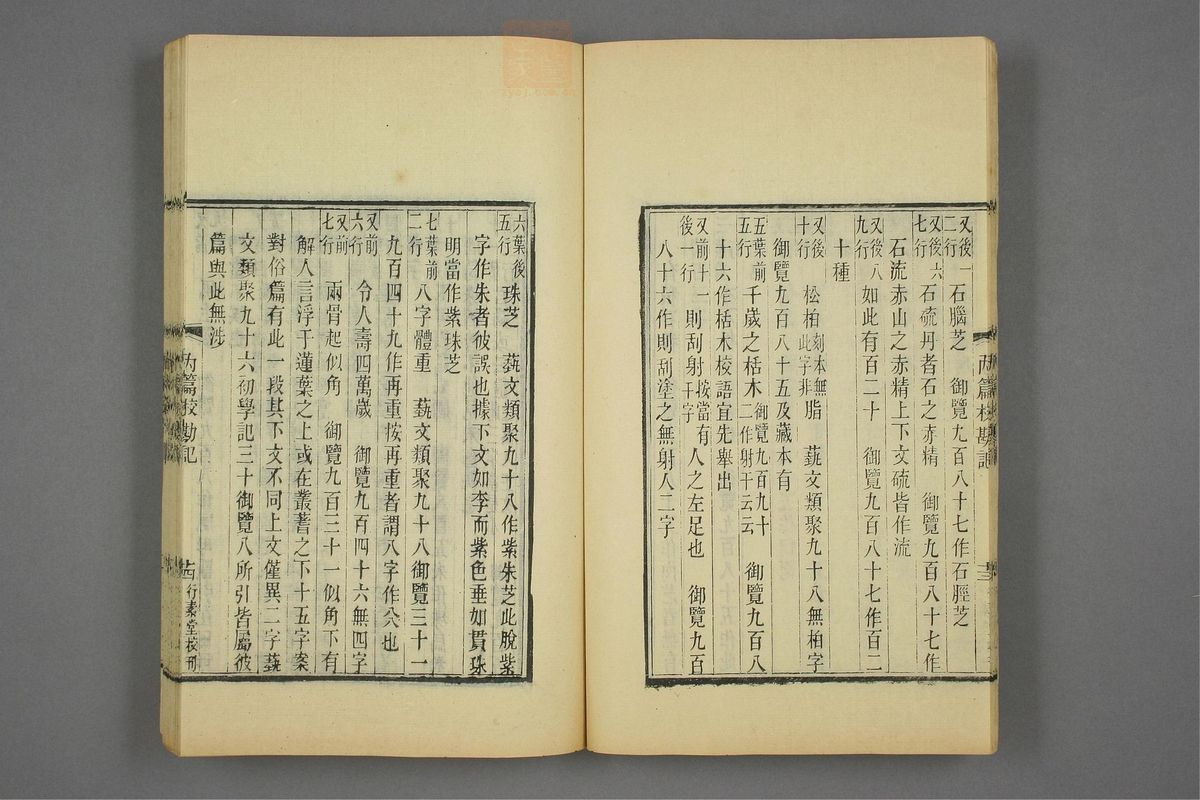 又後一二行 石腦芝 御覽九百八十七作石脛芝
又後六七行 石硫丹者石之赤精 御覽九百八十七作
石流赤山之赤精上下文硫皆作流
又後八九行 如此有百二十 御覽九百八十七作百二
十種
又後十行 松柏刻本無此字非脂 藝文類聚九十八無柏字
御覽九百八十五及藏本有
五葉前五行 千歲之栝木御覽九百九十二作射干云云 御覽九百八
十六作栝木校語宜先舉出
又前十一後一行 則刮射按當有干字人之左足也 御覽九百
八十六作則刮塗之無射人二字
內篇校勘記
六葉後五行 珠芝 藝文類聚九十八作紫朱芝此脫紫
字作朱者彼誤也據下文如李而紫色垂如貫珠
明當作紫珠芝
七葉前二行 八字體重 藝文類聚九十八御覽三十一
九百四十九作再重按再重者謂八字作仌也
又前六行 令人壽四萬歲 御覽九百四十六無四字
又前七行 兩骨起似角 御覽九百三十一似角下有
解人言浮于蓮葉之上或在叢蓍之下十五字案
對俗篇有此一段其下文不同上文僅異二字藝
文類聚九十六初學記三十御覽八所引皆屬彼
篇與此無涉
內篇校勘記
行素堂校刊